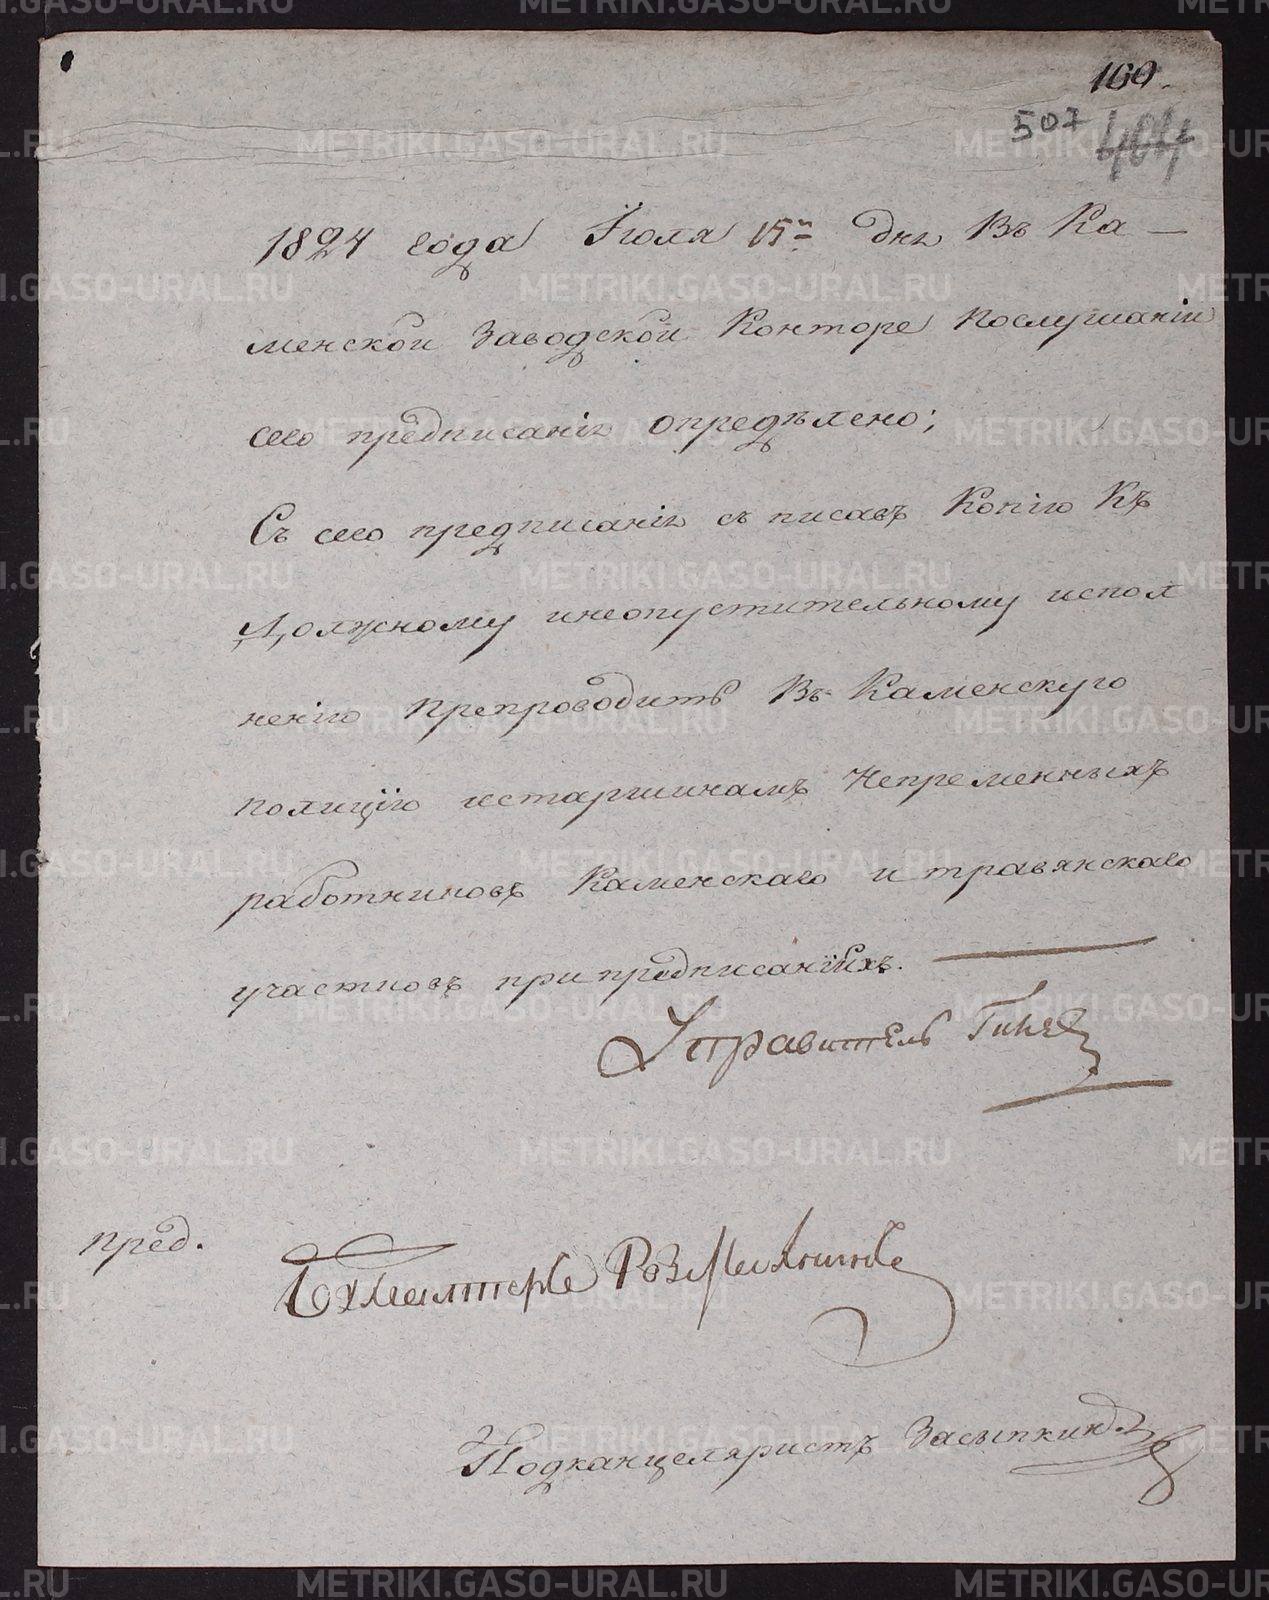 160.
507 404
1824 года Іюля 15го дня Въ Ка-
менской Заводской Конторе послушаніи
сего предписанія определено;
Съ сего предписанія съ писавъ Копію Къ
Должному инеопустительному испол
ненію препроводить Въ Каменскую
полицію истаршинамъ Непременныхъ
работниковъ Каменскаго и травянскаго
участковъ при предписаніяхъ.
Управитель
пред.
Бухгалтеръ
Подканцеляристъ Засыпкинъ
METRIKI.GASO-URAL.RU